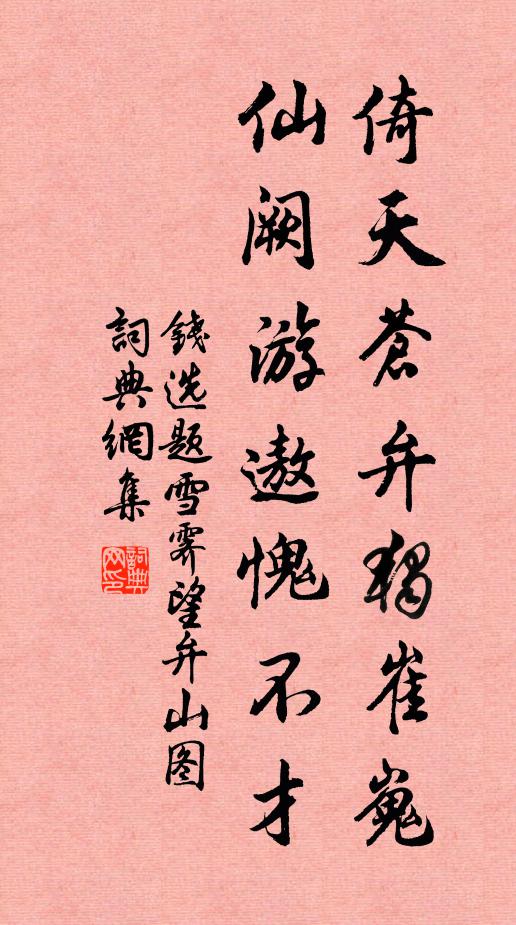 倚天蒼弁獨崔嵬
仙阙游遨愧不才
錢选题雪霽望弁山图
詞典網集
詞典网印